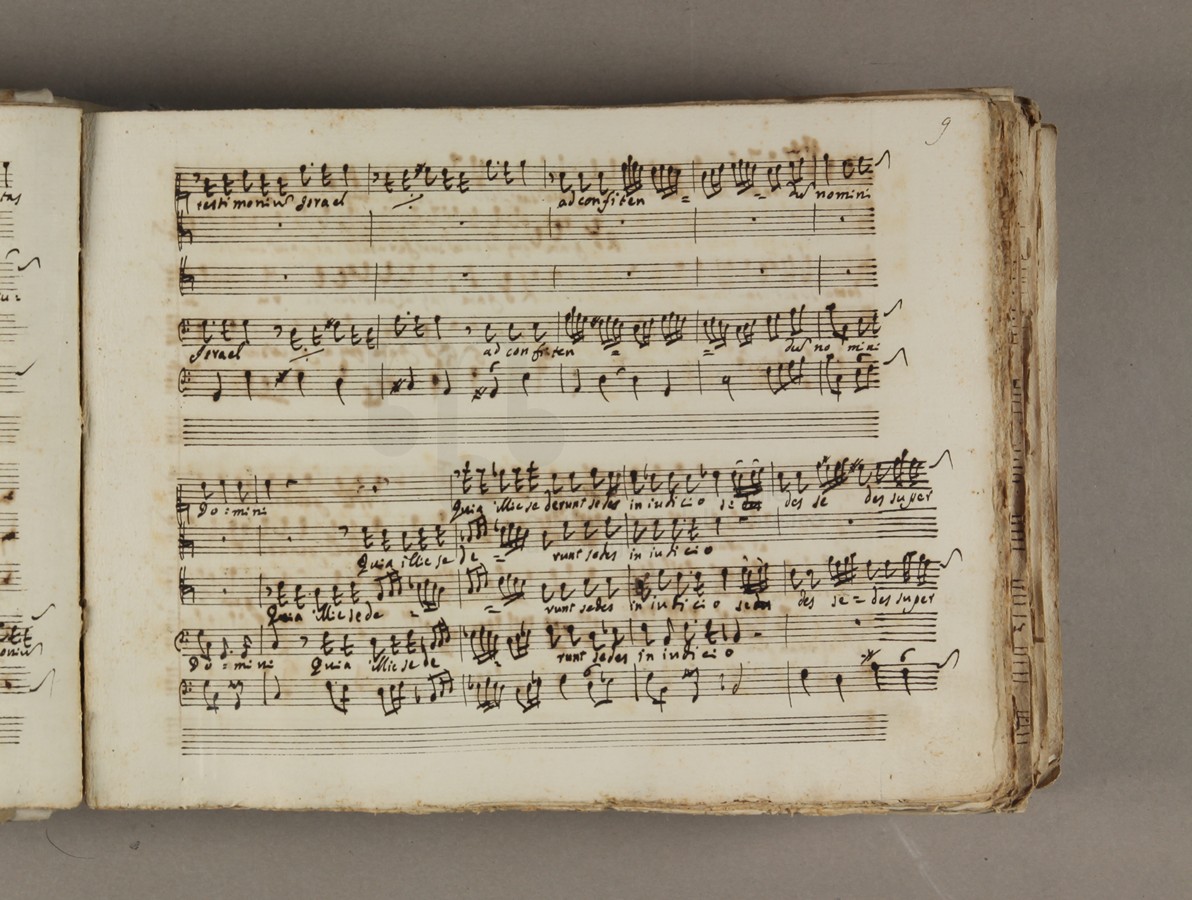 9
testimoniu Israel ad confiten = = du nomini
Israel ad confiten = = du no mini
Do = mini Quia illic sederunt sedes in iudicio se des des se des super
Quia illic se de = runt sedes in iudicio
Quia illic sede - = runt sedes in iudicio sedes des se = des super
Do = mini Quia illic sede runt sedes in iudicio